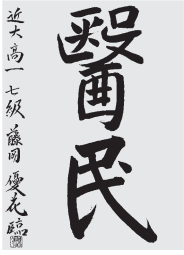 醫民
近大高一 七級 藤岡優花臨